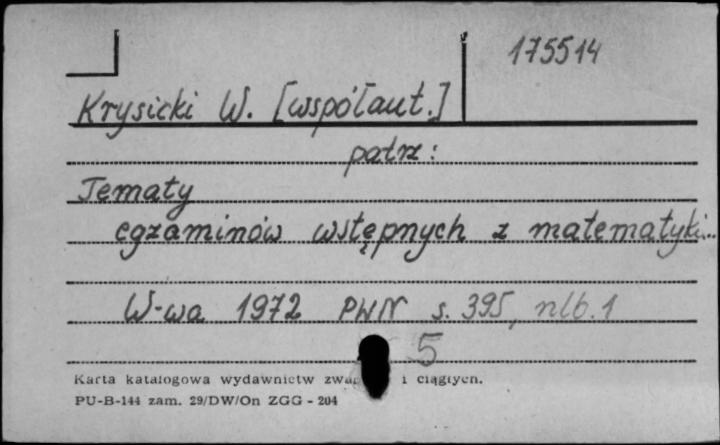 175514
Krysicki W. [współaut.]
patrz:
Tematy
egzaminów wstępnych z matematyki...
W-wa 1972 PWN s. 395, nlb. 1
5
Karta katalogowa wydawnictw i ciągłych.
PU-B-144 zam. 29/DW/On ZGG - 204